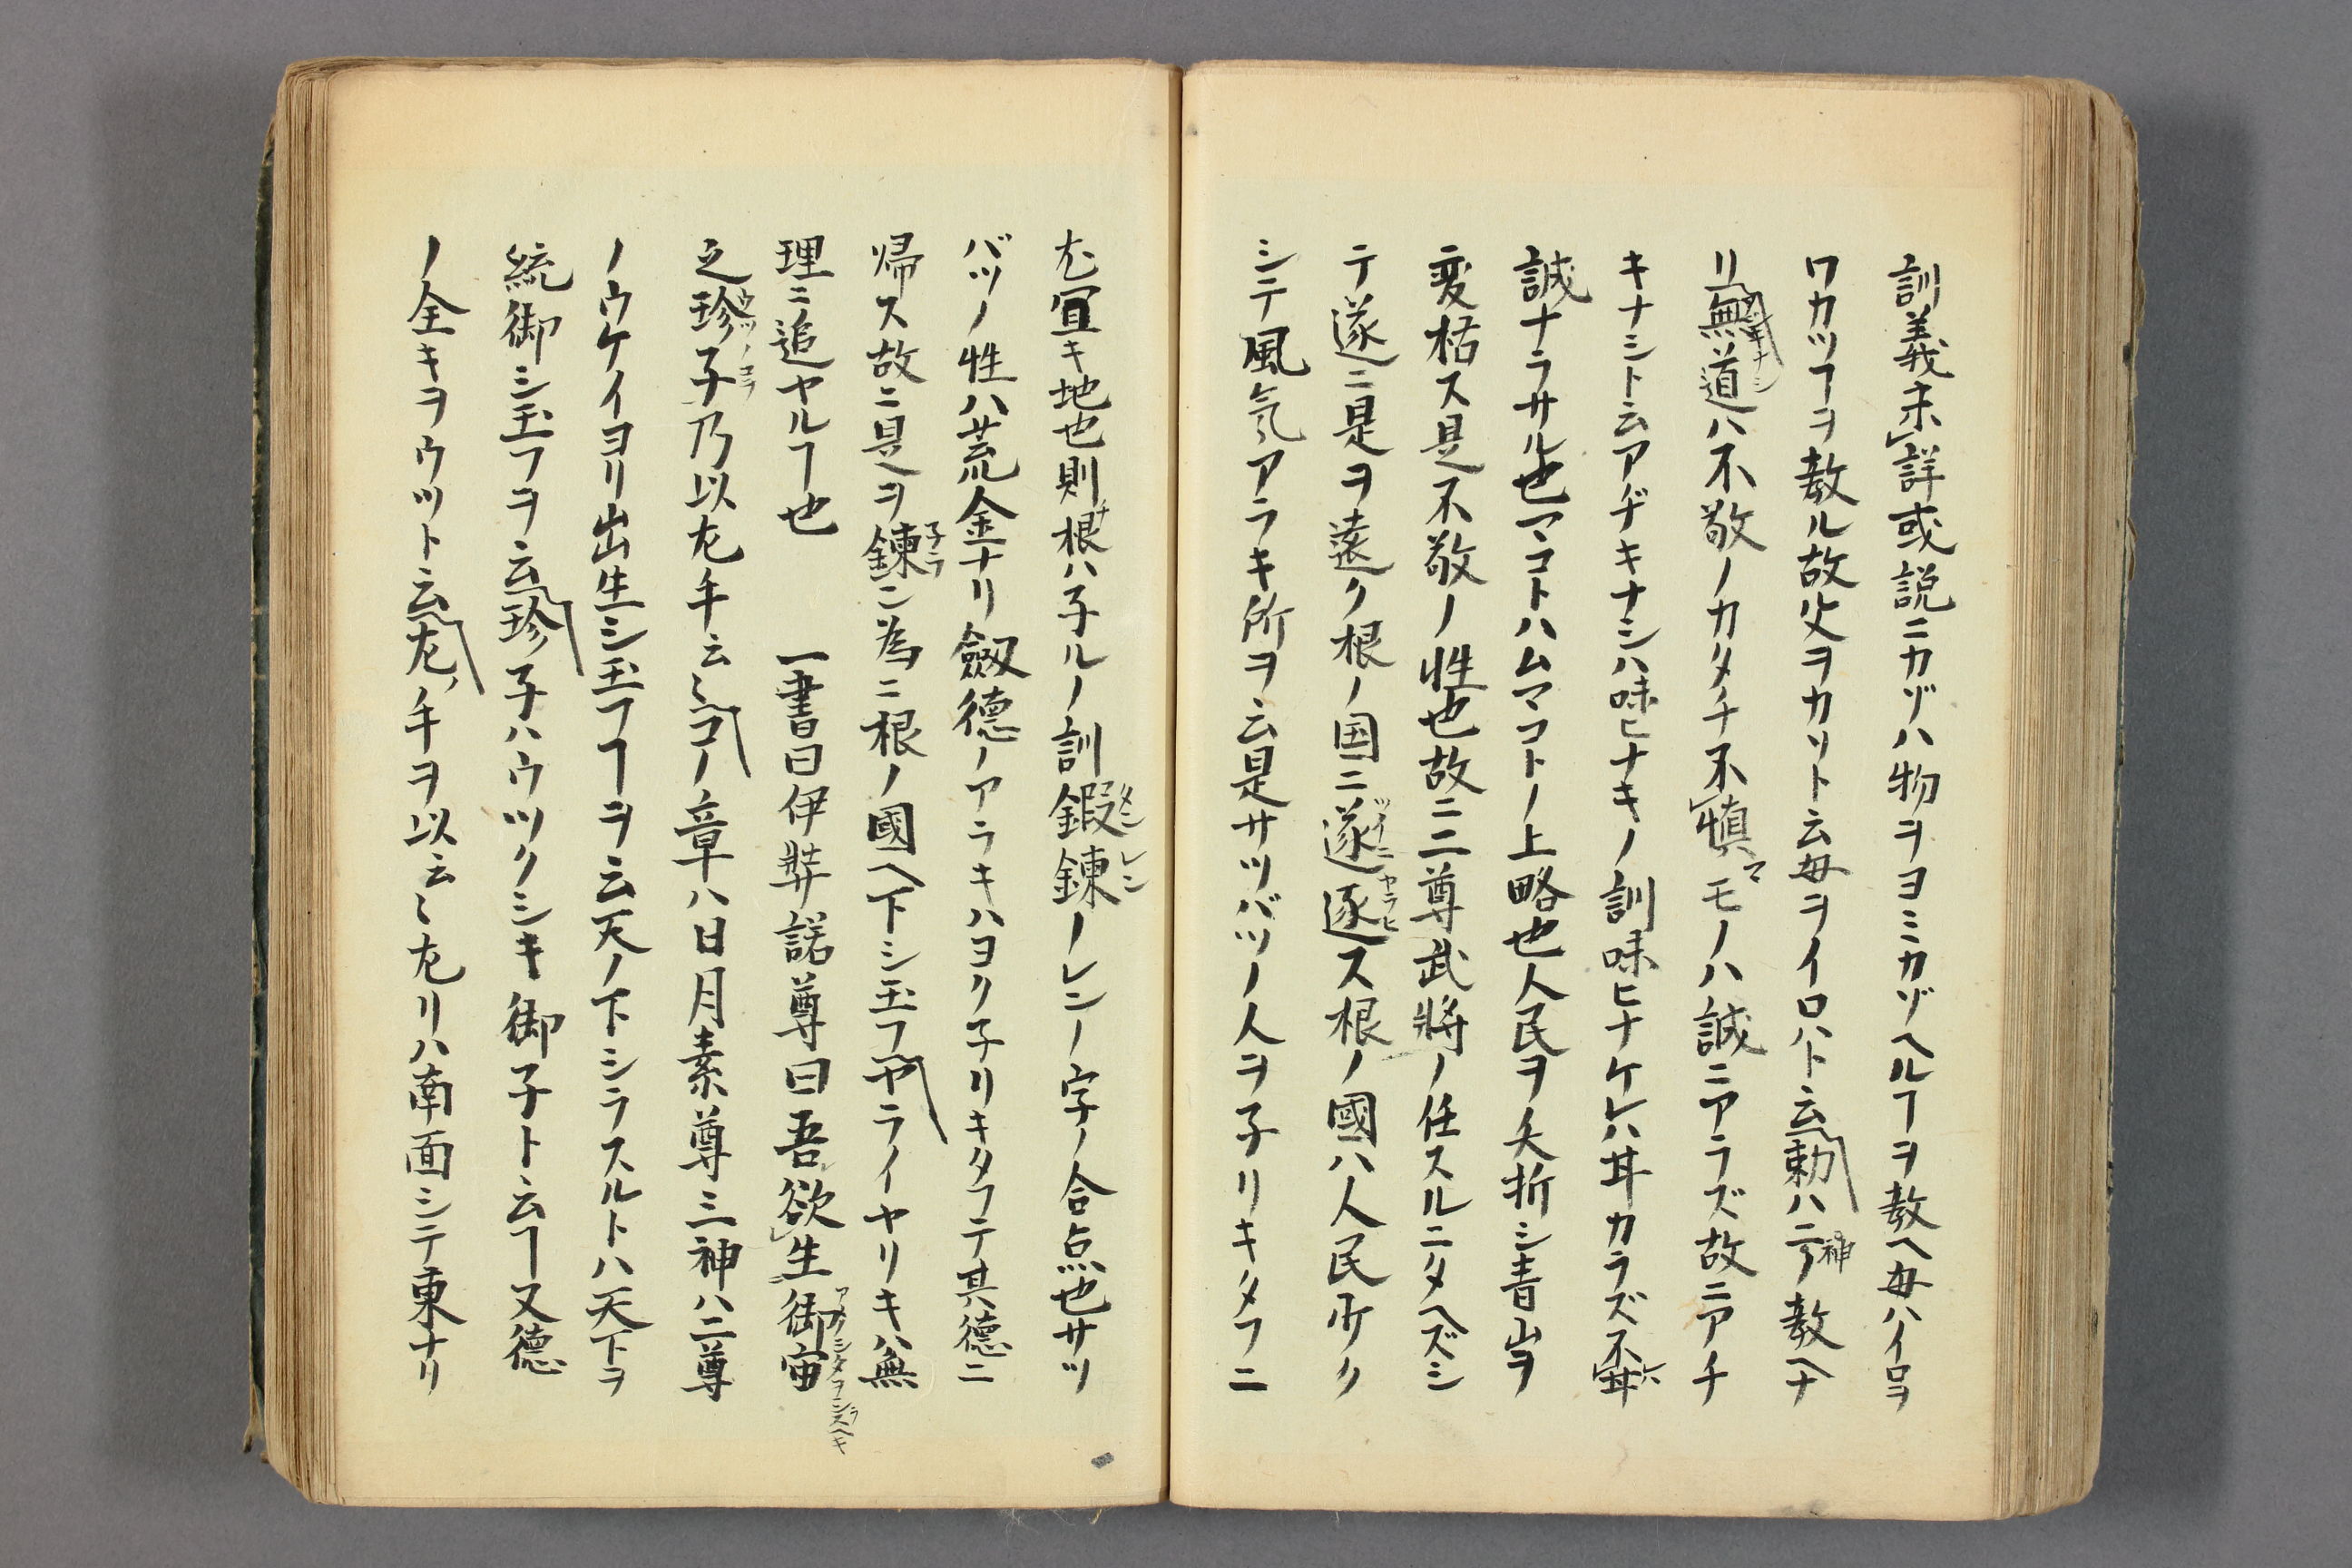 訓義未詳或説ニカゾハ物ヲヨミカゾヘルヿヲ教ヘ母ハイロヲ
ワカツヿヲ教ル故父ヲカソト云母ヲイロハト云勅ハ神教ヘナ
リ無道ハ不敬ノカタチ不慎モノハ誠ニアラズ故ニアチ
キナシト云アヂキナシハ味ヒナキノ訓味ヒナケレハ甘カラズ不甘ハ
誠ナラサル也マコトハムマコトノ上略也人民ヲ夭折シ青山ヲ
変枯ス是不敬ノ性也故ニ二尊武將ノ任スルニタヘズシ
テ遂ニ是ヲ遠ク根ノ国ニ遂逐ス根ノ國ハ人民少ク
シテ風気アラキ所ヲ云是サツバツノ人ヲ子リキタフニ
尤宜キ地也則根ハ子ルノ訓鍜錬ノレンノ字ノ合点也サツ
バツノ性ハ荒金ナリ劔德ノアラキハヨク子リキタフテ其德ニ
帰ス故ニ是ヲ錬ン為ニ根ノ國ヘ下シ玉フヤライヤリキハ無
理ニ追ヤルヿ也　一書曰伊弉諾尊曰吾欲生御宙
之珍子乃以左手云〻コノ章ハ日月素尊三神ハ二尊
ノウケイヨリ出生シ玉フヿヲ云天ノ下シラスルトハ天下ヲ
統御シ玉フヲ云珍子ハウツクシキ御子ト云ヿ又德
ノ全キヲウツト云左ノ手ヲ以云〻左リハ南面シテ東ナリ